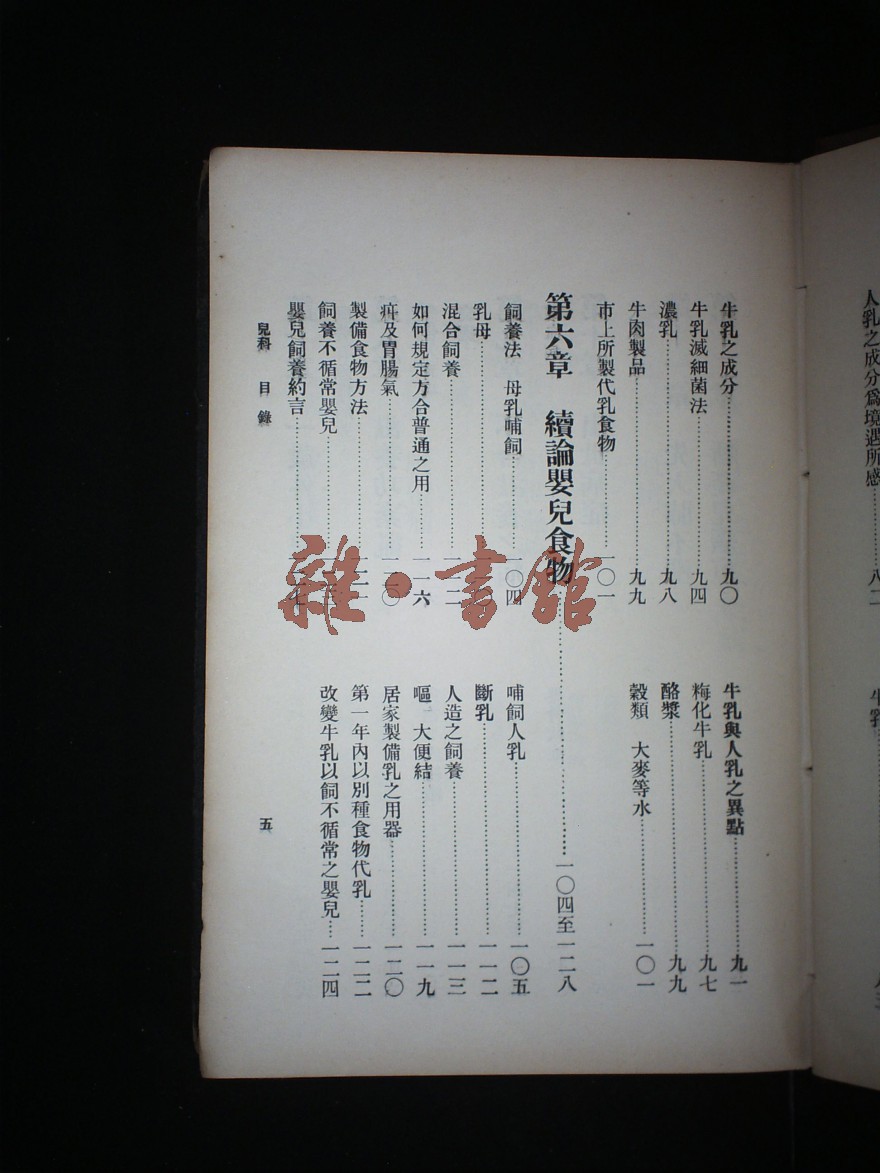 人乳之成分爲境遇所感……八二
牛乳……
牛乳之成分……九〇 牛乳與人乳之異點……九一
牛乳滅細菌法……九四 化牛乳……九七
濃乳……九八 酪漿……九九
牛肉製品……九九 穀類 大麥等水……一〇一
市上所製代乳食物……一〇一
第六章 續論嬰兒食物……一〇四至一二八
飼養法 母乳哺飼……一〇四 哺飼人乳……一〇五
乳母…… 斷乳……一一二
混合飼養……一一二 人造之飼養……一一三
如何規定方合普通之用……一一六 嘔 大便結……一一九
及胃腸氣…… 居家製備乳之用器……一二〇
製備食物方法……一二一 第一年內以別種食物代乳……一二二
飼養不循常嬰兒…… 改變牛乳以飼不循常之嬰兒……一二四
嬰兒飼養約言……
兒科 目錄 五
雜·書館